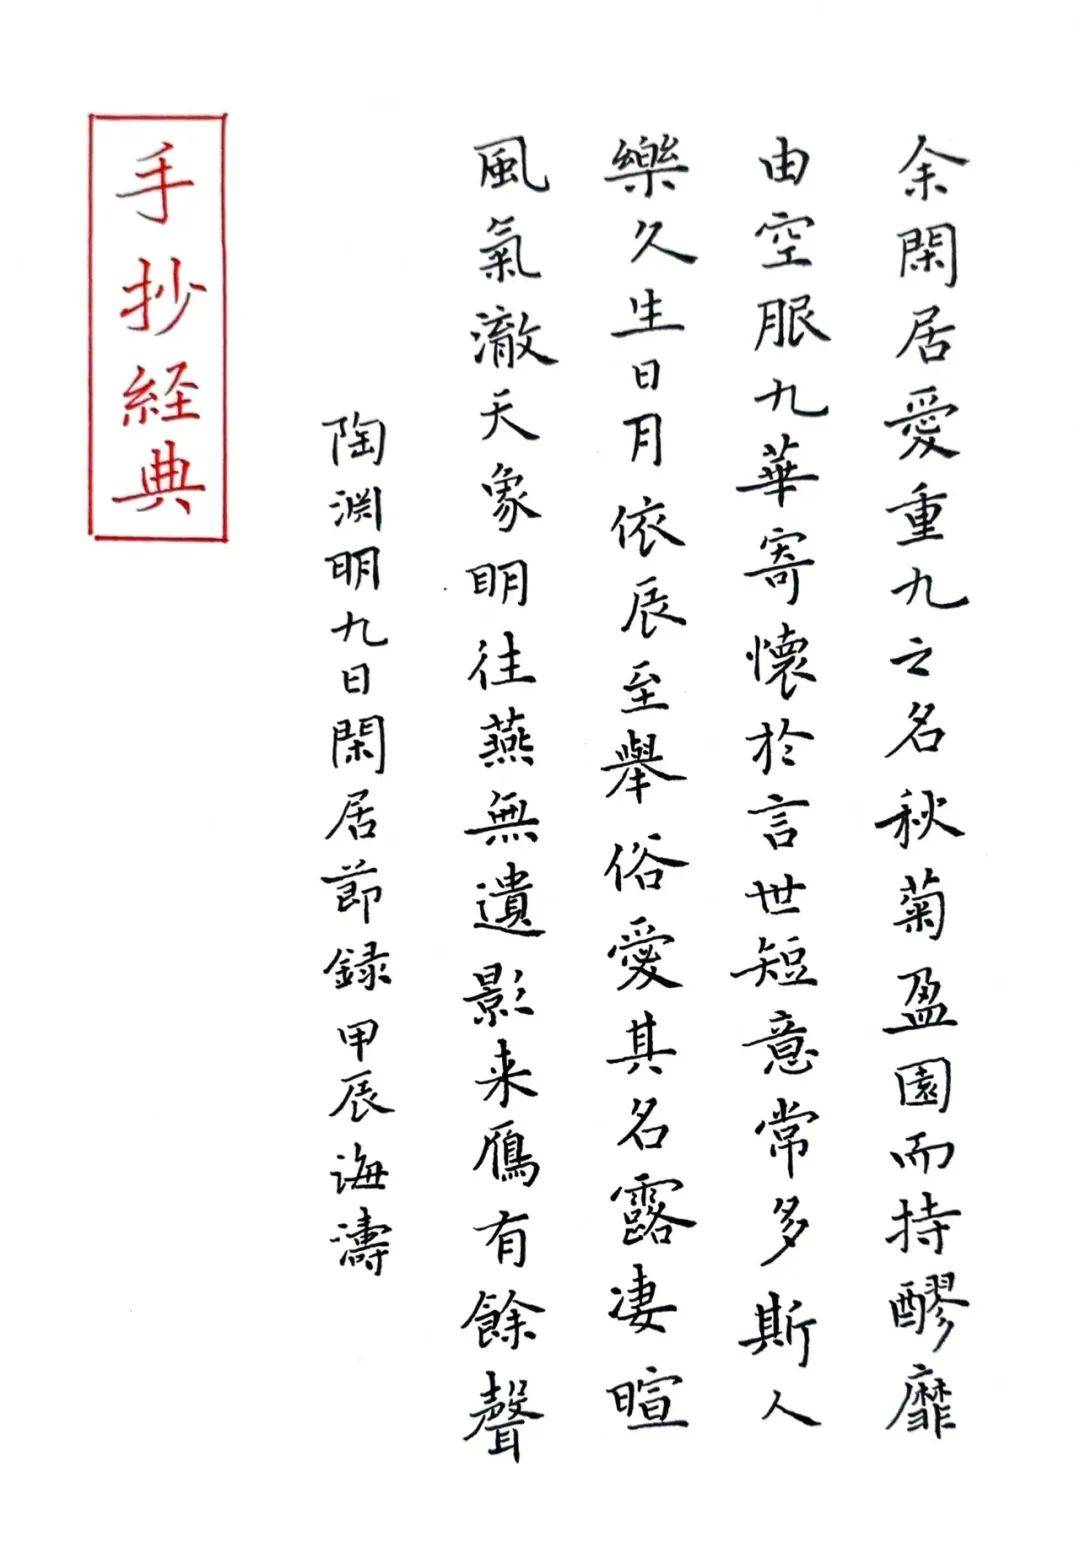 余閑居愛重九之名秋菊盈園而持醪靡
由空服九華寄懷於言世短意常多斯人
樂久生日月依辰至舉俗愛其名露凄暄
風氣澈天象明往燕無遺影来鴈有餘聲
陶渊明九日閑居節録甲辰海濤
手抄経典